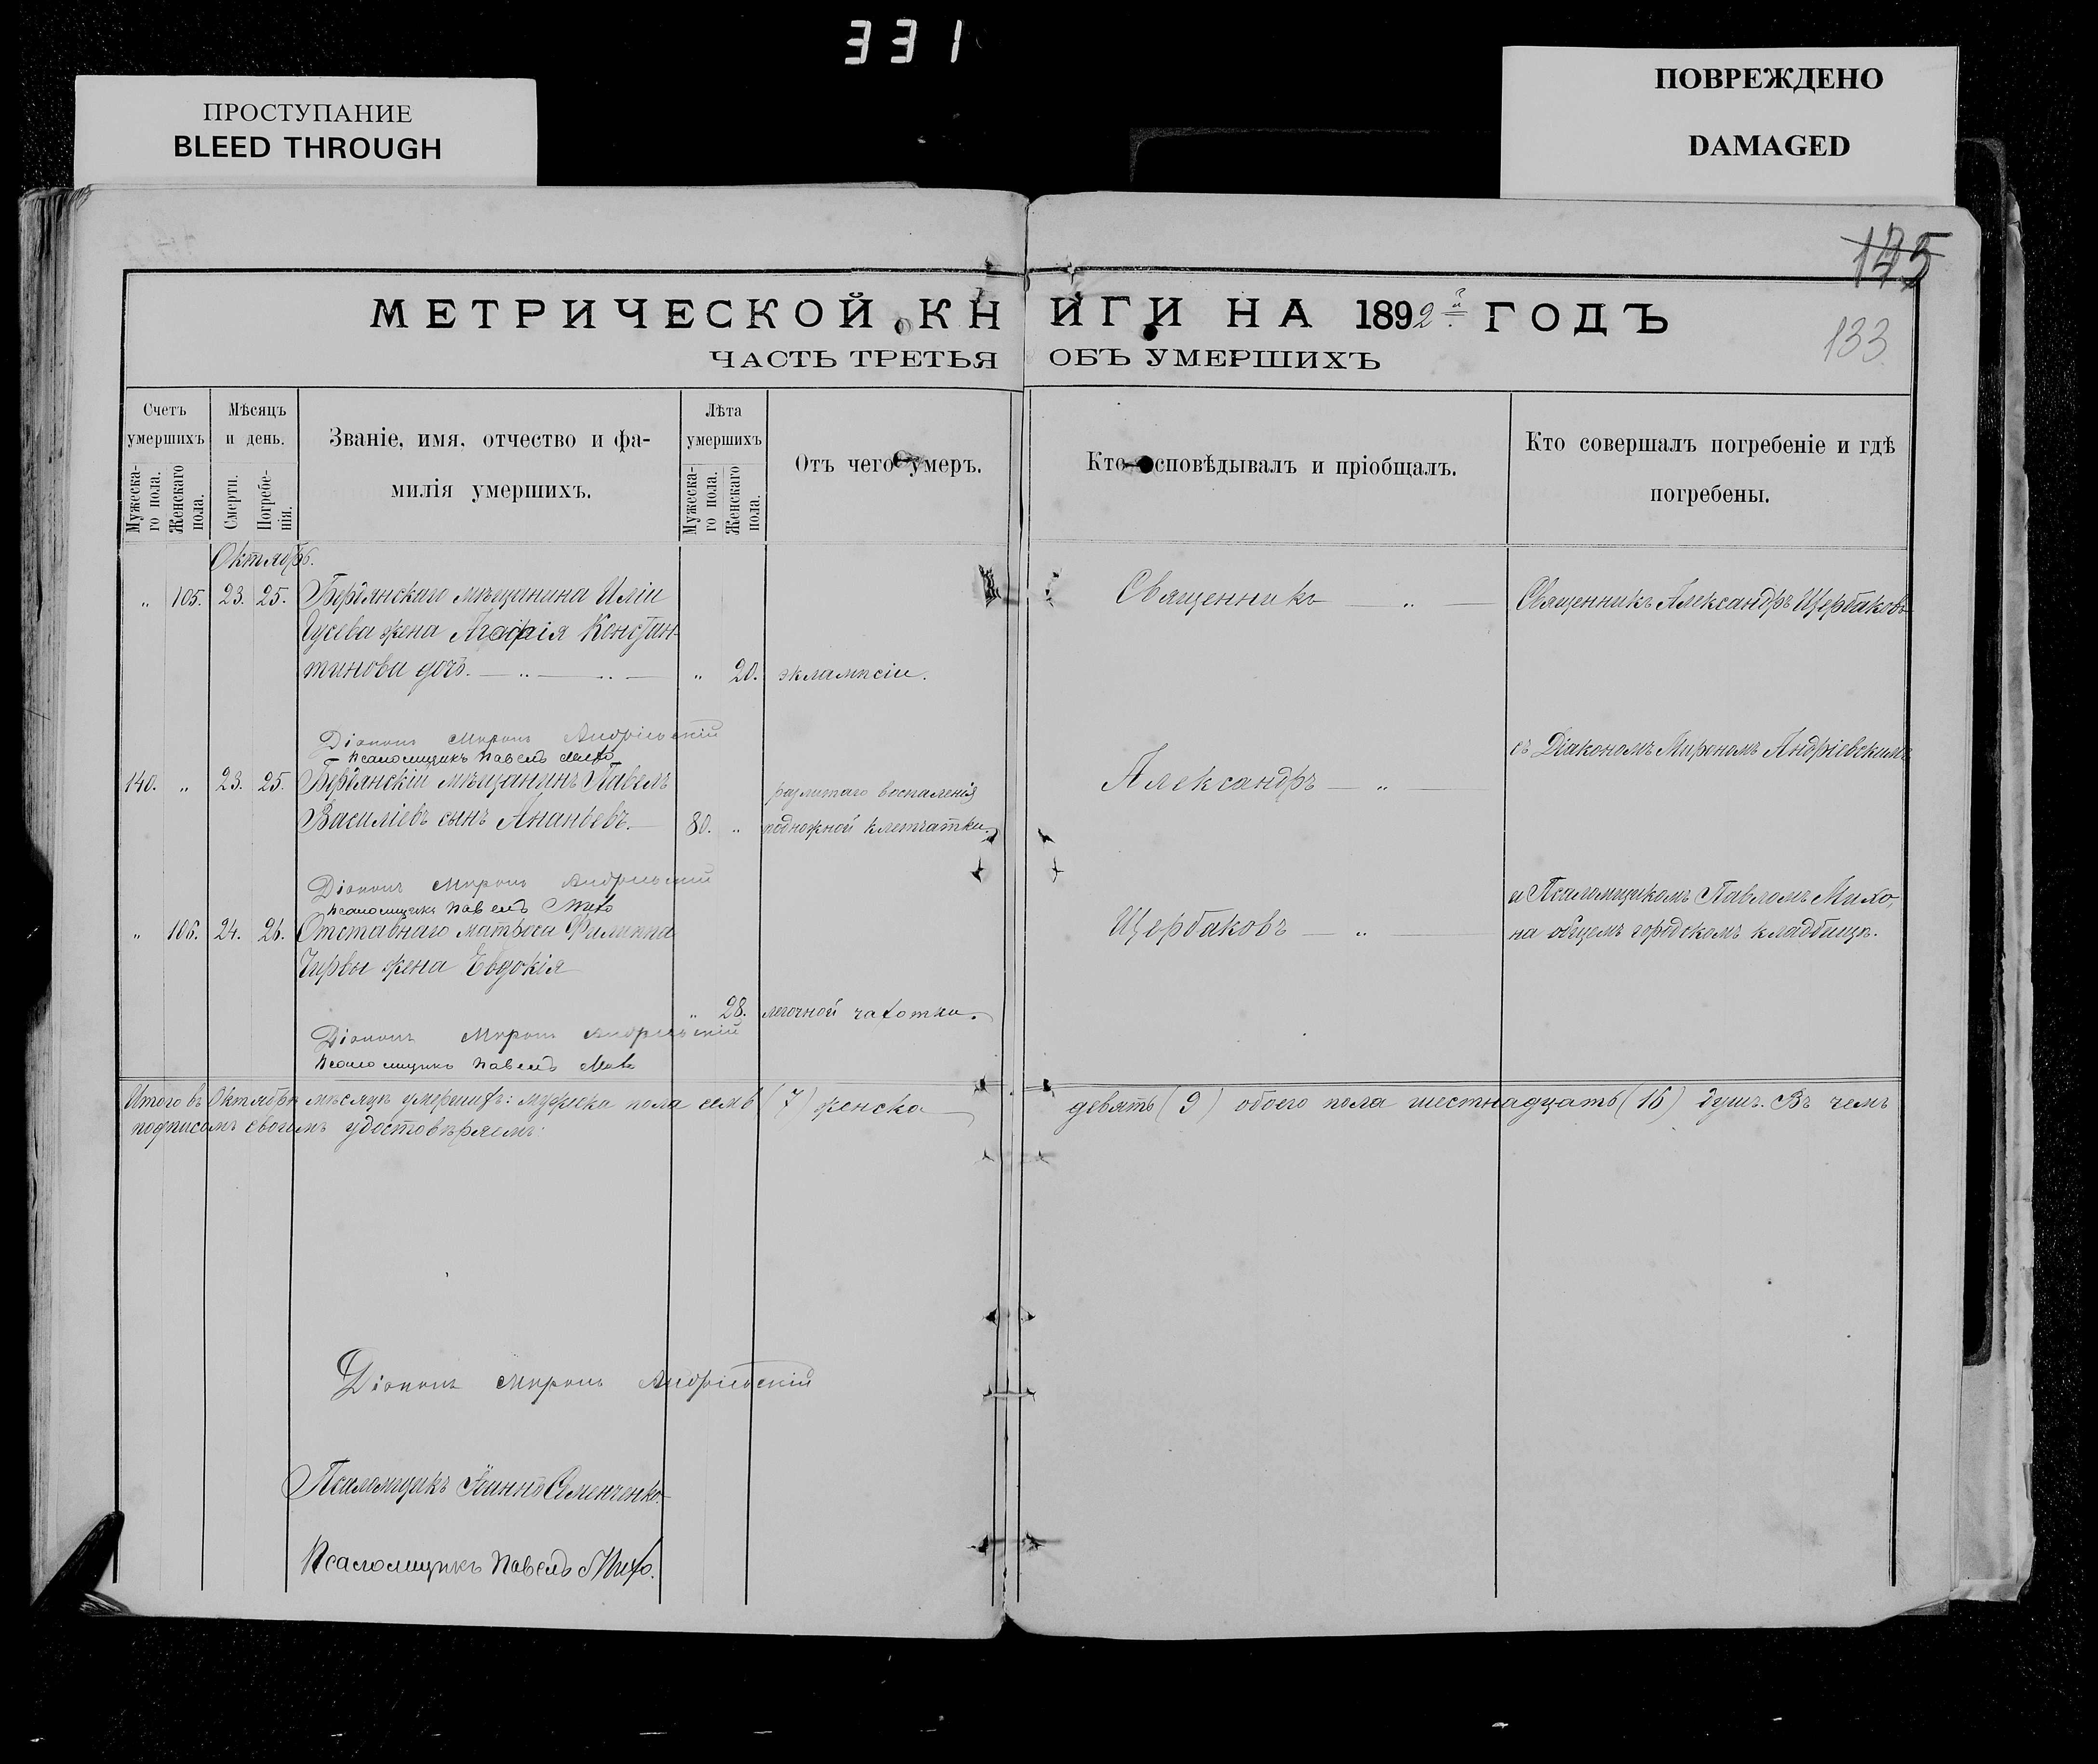 331
ПРОСТУПАНИЕ
BLEED THROUGH
ПОВРЕЖДЕНО
DAMAGED
МЕТРИЧЕСКОЙ КНИГИ НА 1892й ГОДЪ
133
ЧАСТЬ ТРЕТЬЯ ОБЪ УМЕРШИХЪ
Счетъ умершихъ
Мужеска-го пола.
Женскаго пола.
Мѣсяцъ и день.
Смерти.
Погребе-нія.
Званіе, имя, отчество и фа-
милія умершихъ.
Лѣта умершихъ
Мужеска-го пола.
Женскаго пола.
Отъ чего умеръ.
Кто исповѣдывалъ и пріобщалъ.
Кто совершалъ погребеніе и гдѣ
погребены.
Октябрь.
„ 105. 23. 25. Бердянскаго мѣщанина Иліи
Гусева жена Агафія Констан-
тинова дочь. „ 20. эклампсіи.
Діаконъ Миронъ Андріевскій
Псаломщикъ Павелъ Михо
140. „ 23. 25. Бердянскій мѣщанинъ Павелъ
Василіевъ сынъ Ананьевъ. 80. „
разлитаго воспаленія
подкожной клетчатки.
Діаконъ Миронъ Андріевскій
Псаломщикъ Павелъ Михо
„ 106. 24. 26. Отставнаго матроса Филиппа
жена Евдокія
„ 28. легочной чахотки.
Діаконъ Миронъ Андріевскій
Псаломщикъ Павелъ Михо
Священникъ „
Александръ „
Щербаковъ „
Священникъ Александръ Щербаковъ
съ Діакономъ Мирономъ Андріевскимъ
и Псаломщикомъ Павломъ Михо,
на общемъ городскомъ кладбищѣ.
Итого въ Октябрѣ мѣсяцѣ умершихъ: мужска пола семь (7) женска девять (9) обоего пола шестнадцать (16) душъ. Въ чемъ
подписомъ своимъ удостовѣряемъ:
Діаконъ Миронъ Андріевскій
Псаломщикъ Іоаннъ Семенченко
Псаломщикъ Павелъ Михо.